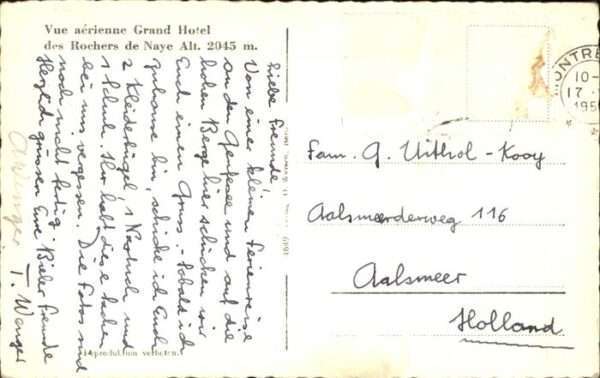 Vue aérienne Grand Hotel
des Rochers de Naye Alt. 2045 m.
Liebe Freunde!
Von einer kleinen Ferienreise
an den Genfersee und auf die
hohen Berge hier schicken wir
Euch einen Gruss. - Sobald ich
zuhause bin, schicke ich Euch
2 Kleiderbügel, 1 Nastuch und
1 Ihr habt diese Sachen
bei uns vergessen. Die Fotos sind
noch nicht fertig.
Herzlich grüssen Eure Bieler Freunde
T. Wenger
A. Wenger
Reproduktion verboten.
MONTRE
10-
17
195
Fam. G. Uithol - Kooy
Aalsmeerderweg 116
Aalsmeer
Holland